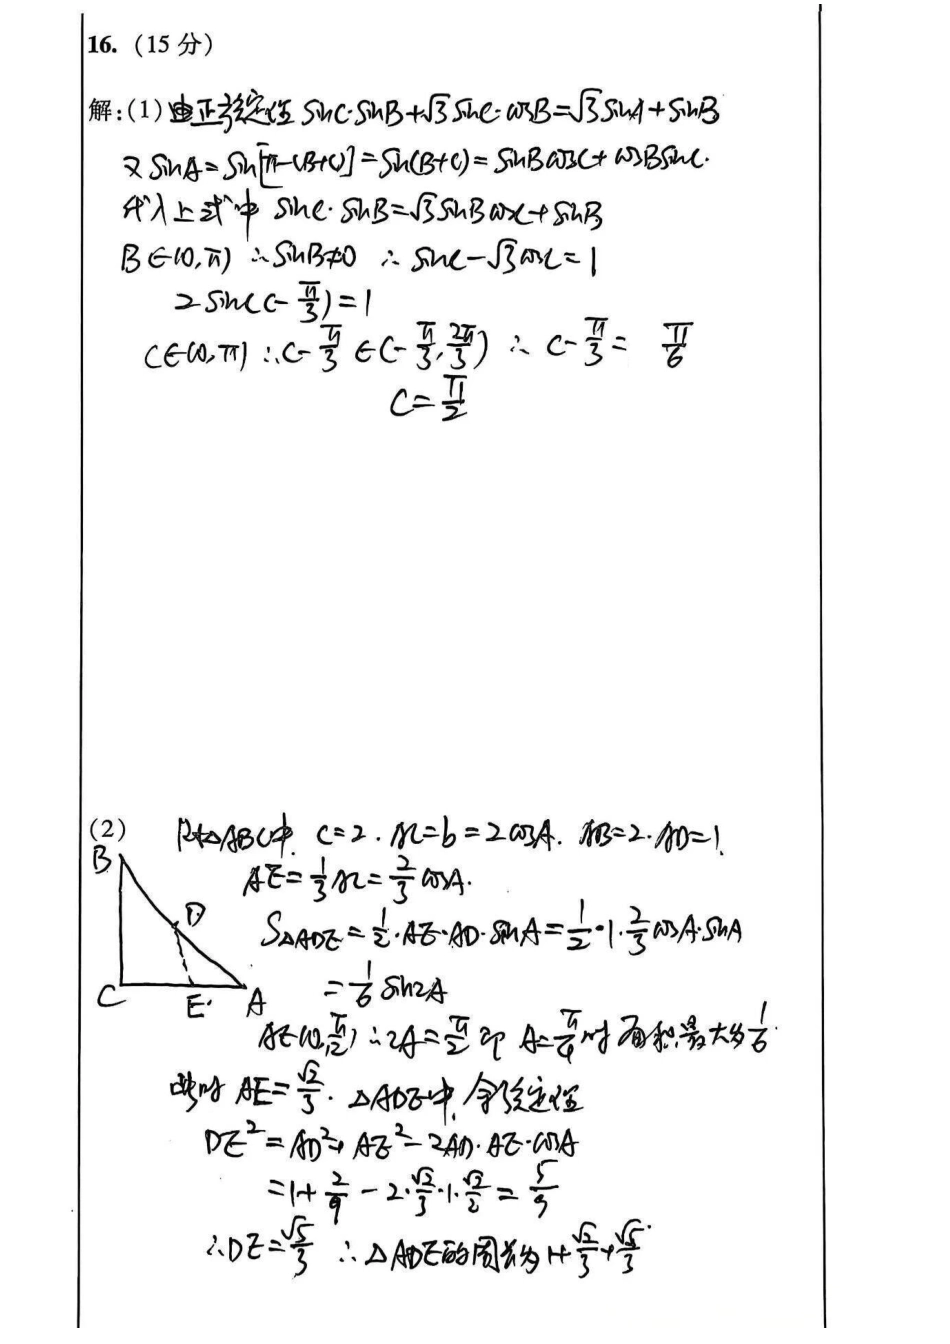 16.（15 分）
解:(1) 由正弦定理 sinC·sinB+√3 sinC·cosB=√3 sinA+sinB
又 sinA=sin[π-(B+C)]=sin(B+C)=sinBcosC+cosBsinC.
代入上式中 sinC·sinB=√3 sinBcosC+sinB
B∈(0,π) ∴sinB≠0 ∴ sinC-√3cosC=1
2sin(C-π/3)=1
C∈(0,π) ∴C-π/3∈(-π/3,2π/3) ∴ C-π/3= π/6
C=π/2
(2) Rt△ABC中. c=2. AC=b=2cosA. AB=2. AD=1.
B
AE=1/3AC=2/3cosA.
D
S△ADE=1/2·AE·AD·sinA=1/2·1·2/3cosA·sinA
=1/6sin2A
C E A
A∈(0,π/2) ∴2A=π/2 即 A=π/4时 面积最大为1/6.
此时 AE=√2/3. △ADE中,余弦定理
DE²=AD²+AE²-2AD·AE·cosA
=1+2/9-2·√2/3·1·√2/2=5/9
∴DE=√5/3 ∴△ADE的周长为1+√2/3+√5/3.